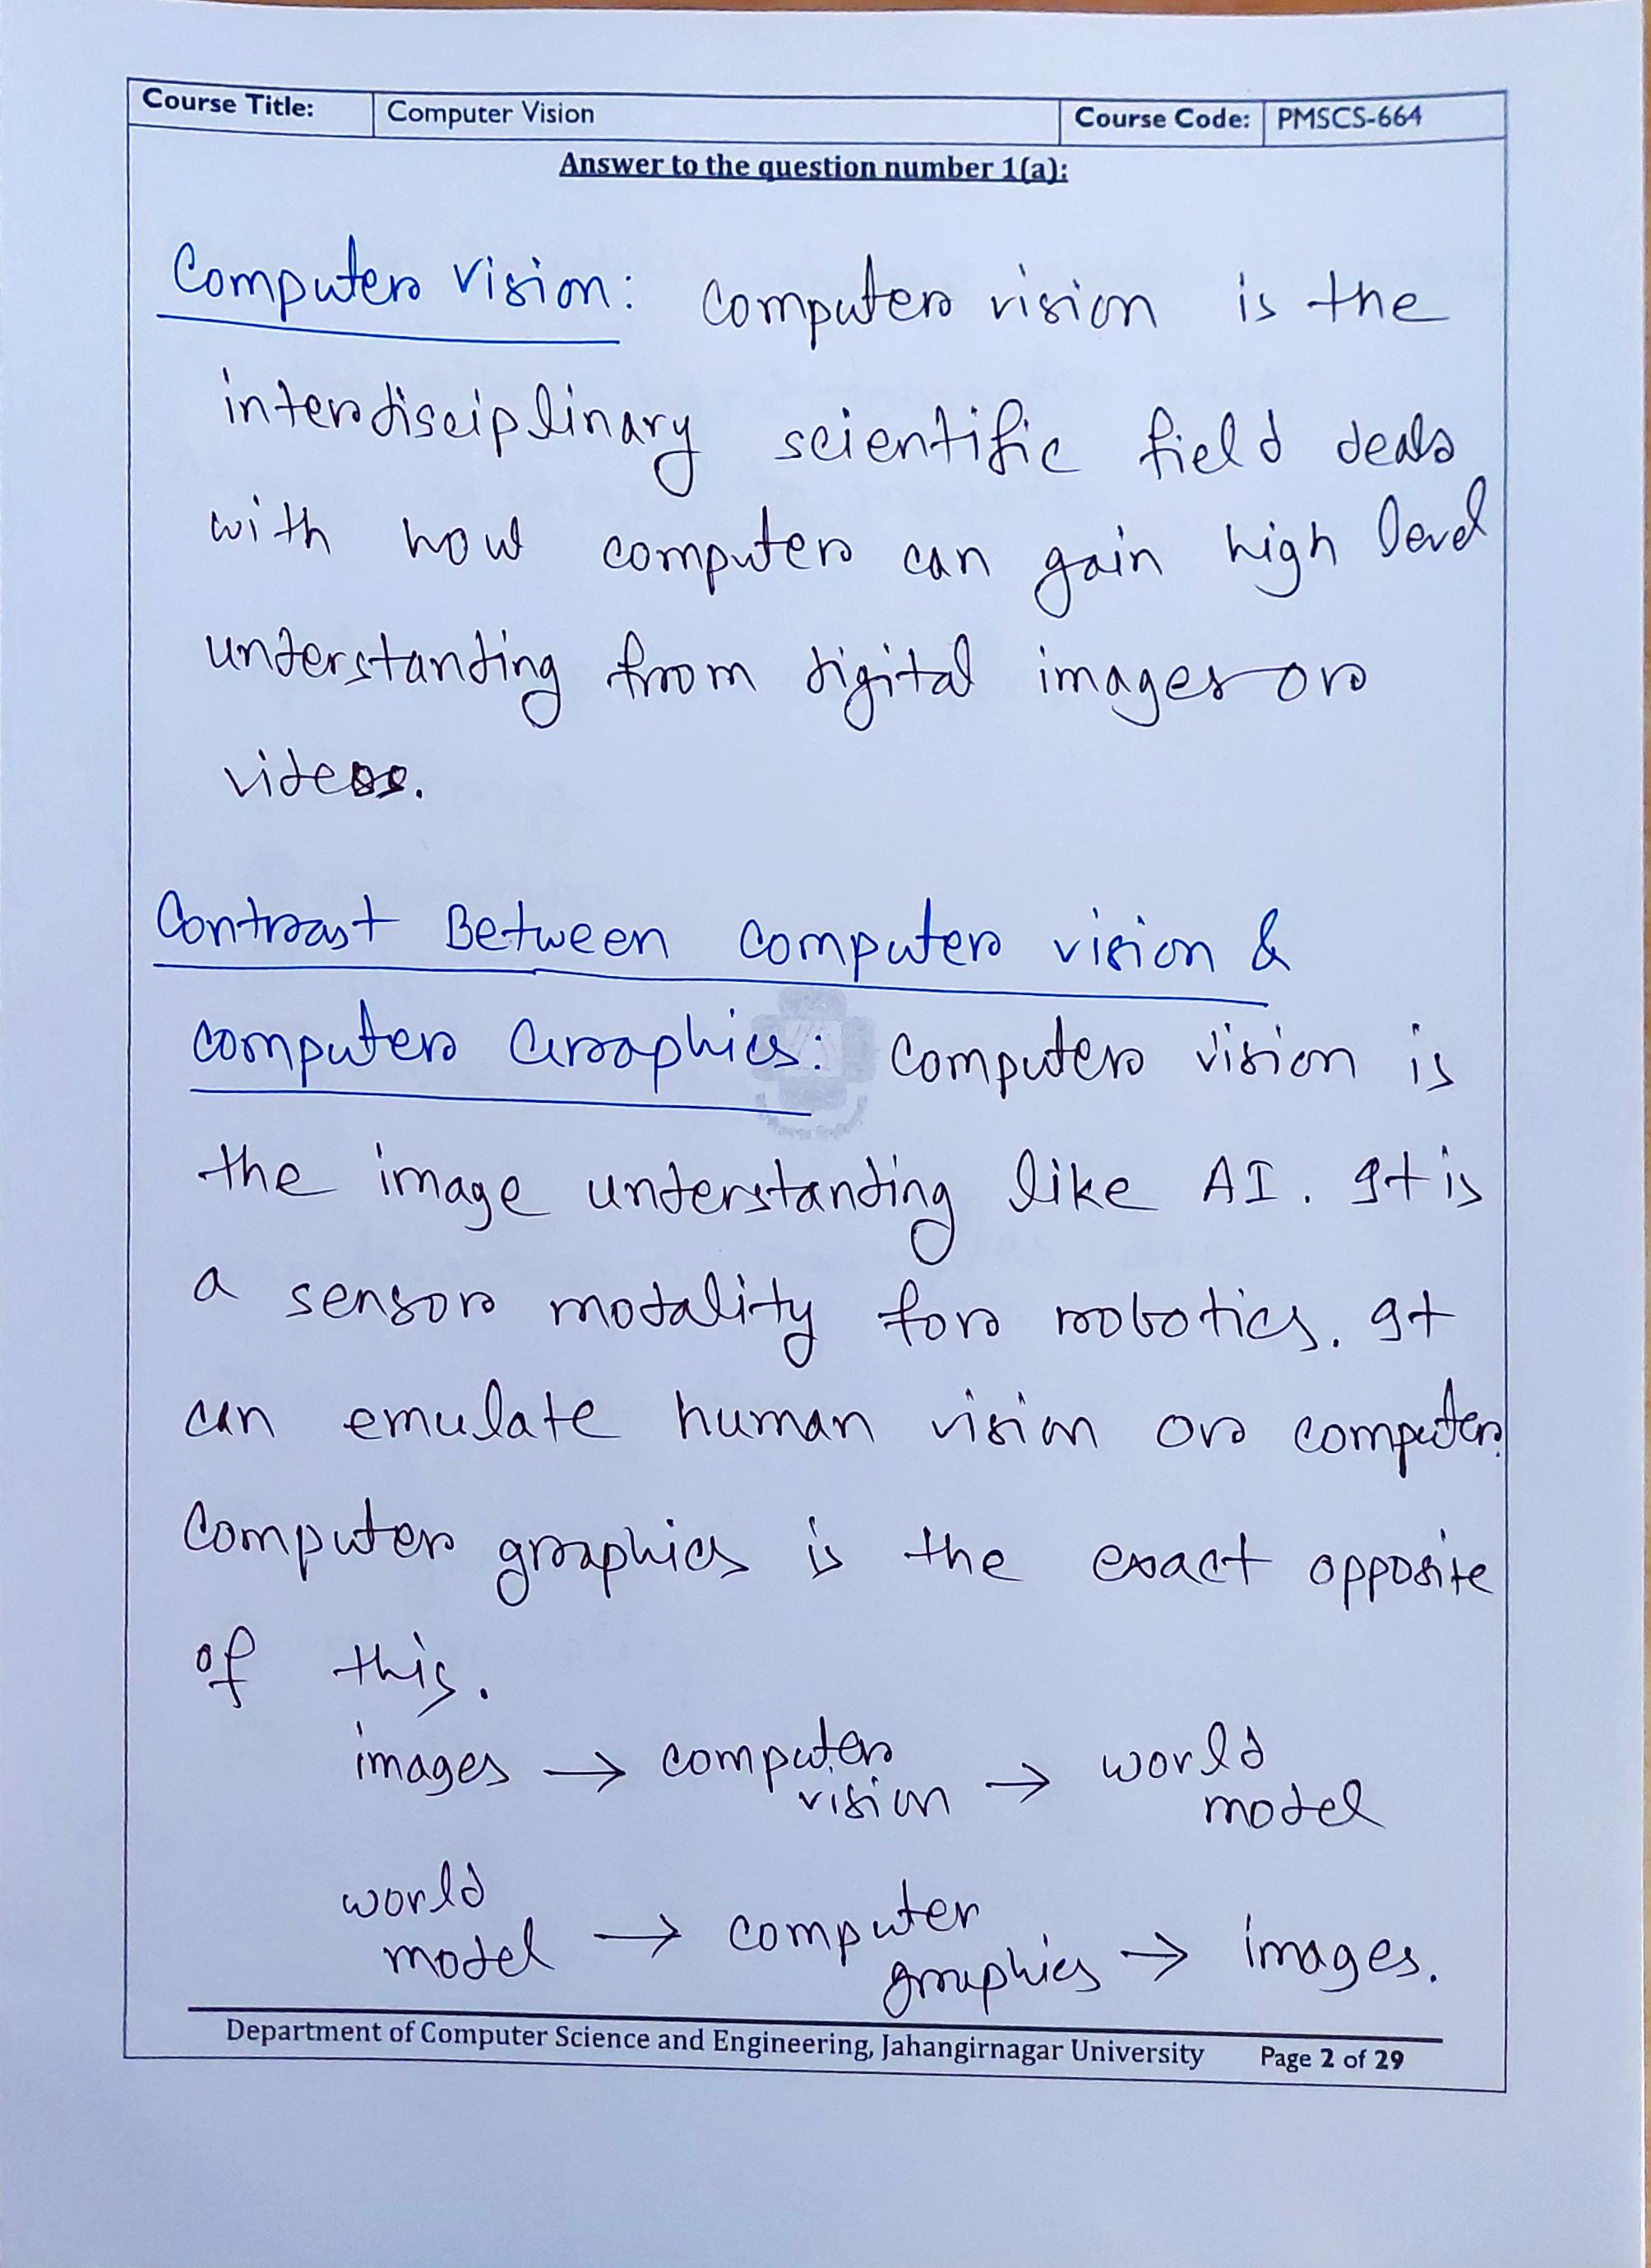 Course Title: Computer Vision Course Code: PMSCS-664
Answer to the question number 1(a):
Computer Vision: Computer vision is the
interdisciplinary scientific field deals
with how computer can gain high level
understanding from digital images or
videos.
Contrast Between computer vision &
computer Graphics: Computer vision is
the image understanding like AI. It is
a sensor modality for robotics. It
can emulate human vision or computer.
Computer graphics is the exact opposite
of this.
images → computer vision → world model
world model → computer graphics → images.
Department of Computer Science and Engineering, Jahangirnagar University Page 2 of 29